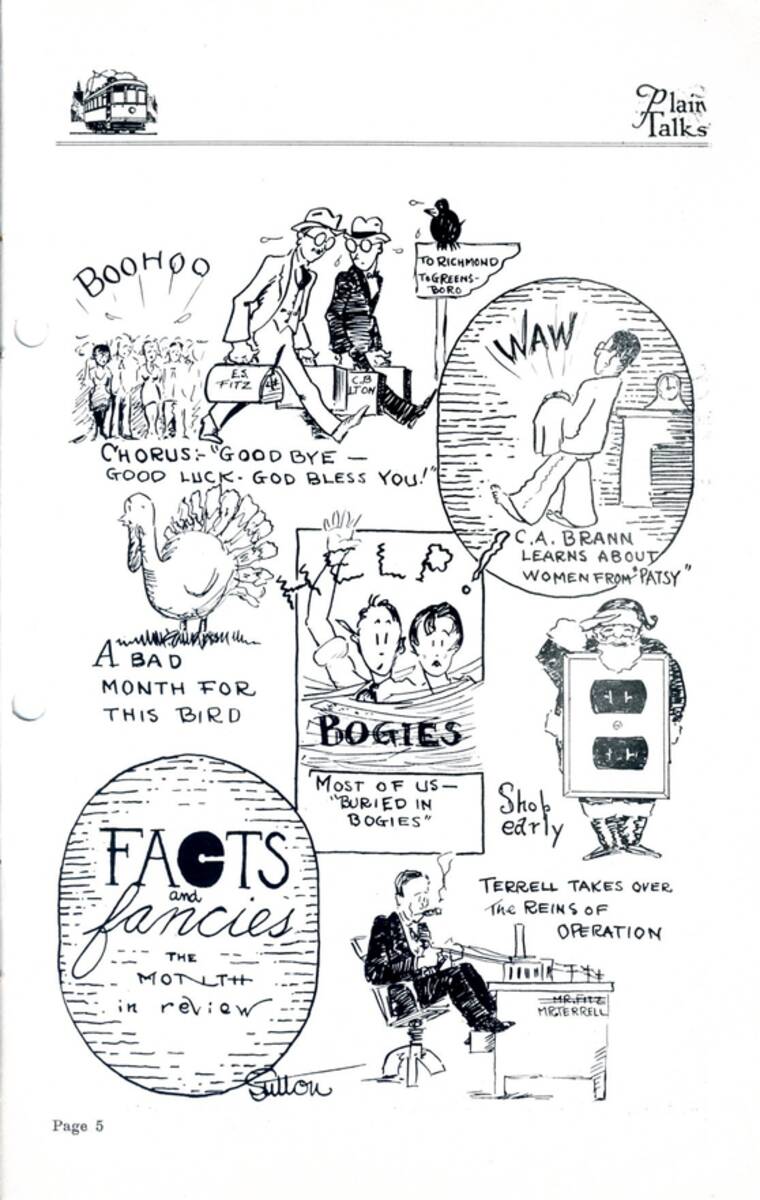 Plain
Talks
BOOHOO
TO RICHMOND
TO GREENS-
BORO
E.S.
FITZ
C.B
LTON
CHORUS:- "GOOD BYE —
GOOD LUCK - GOD BLESS YOU!"
WAW
C.A. BRANN
LEARNS ABOUT
WOMEN FROM "PATSY"
A BAD
MONTH FOR
THIS BIRD
HELP!
BOGIES
"MOST OF US—
"BURIED IN
BOGIES"
Shop
early
FACTS
and
fancies
THE
MONTH
in review
TERRELL TAKES OVER
The REINS OF
OPERATION
MR. FITZ
MR. TERRELL
Sutton
Page 5